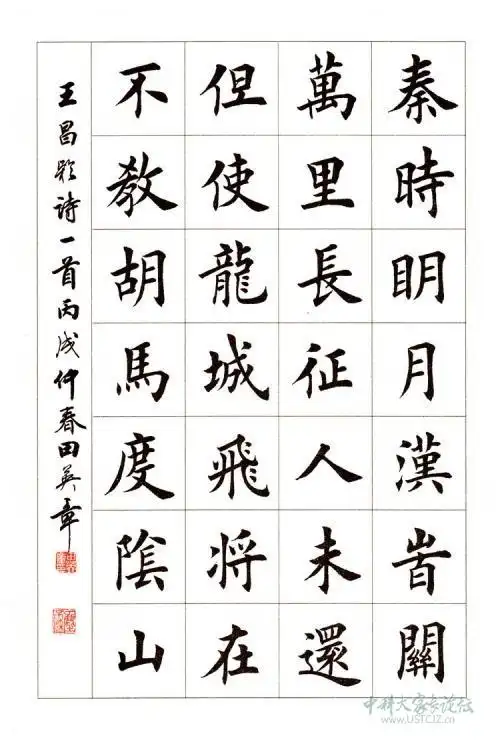 秦時眀月漢旹關
萬里長征人未還
但使龍城飛将在
不教胡馬度陰山
王昌齡詩一首丙戌仲春田英章
中科大家长论坛
www.USTCJZ.cn